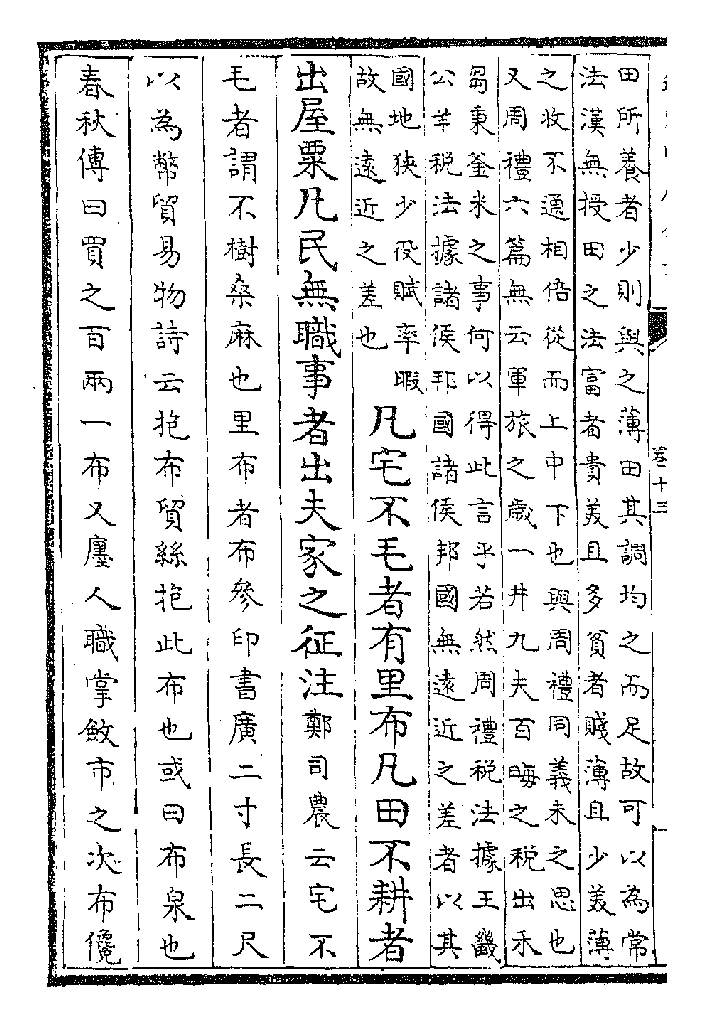 卷十三
田所養者少則與之薄田其調均之而足故可以為常
法漢無授田之法富者貴美且多貧者賤薄且少美薄
之收不通相倍從而上中下也與周禮同義未之思也
又周禮六篇無云軍旅之歲一井九夫百畮之稅出禾
芻秉釜米之事何以得此言乎若然周禮稅法據王畿
公羊稅法據諸侯邦國諸侯邦國無遠近之差者以其
國地狹少役賦率暇
故無遠近之差也
凡宅不毛者有里布凡田不耕者
出屋粟凡民無職事者出夫家之征注鄭司農云宅不
毛者謂不樹桑麻也里布者布參印書廣二寸長二尺
以為幣貿易物詩云抱布貿絲抱此布也或曰布泉也
春秋傳曰買之百兩一布又廛人職掌斂市之次布儳